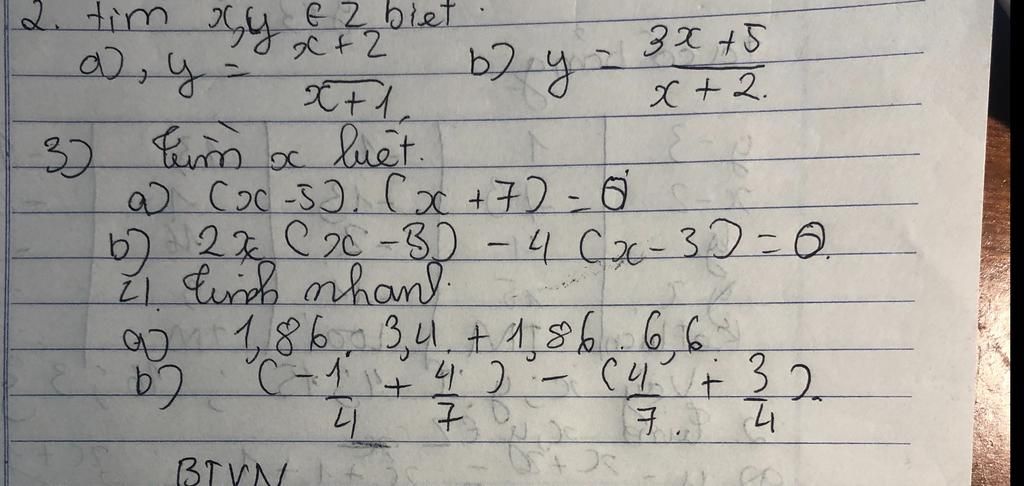 2. tìm x,y ∈ Z biết.
a), y = (x+2)/(x+1) b) y = (3x+5)/(x+2).
3) tìm x biết.
a) (x-5).(x+7)=0
b) 2x(x-3)-4(x-3)=0.
4. tính nhanh.
a) 1,86.3,4.+1,86.6,6.
b) (-1/4 + 4/7) - (4/7 + 3/4).
BTVN